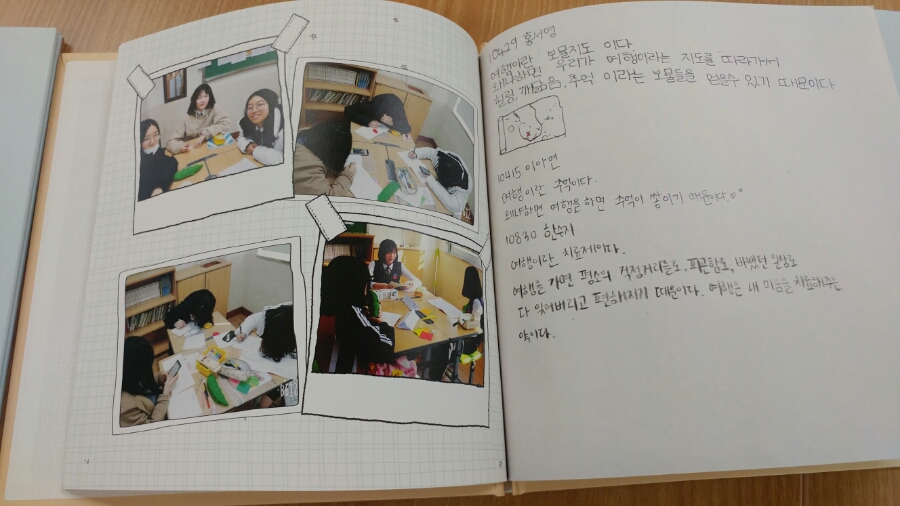 10429 홍서영
여행이란 보물지도 이다.
왜냐하면 우리가 여행이라는 지도를 따라가서
힐링, 깨달음, 추억 이라는 보물들을 얻을수 있기 때문이다
10415 이아연
여행이란 추억이다.
왜냐하면 여행을 하면 추억이 쌓이기 때문이다.
10830 한수지
여행이란 치료제이다.
여행을 가면 평소의 걱정거리들도, 피곤함도, 바빴던 일상도
다 잊어버리고 편해지기 때문이다. 여행은 내 마음을 치료해주는
약이다.
14